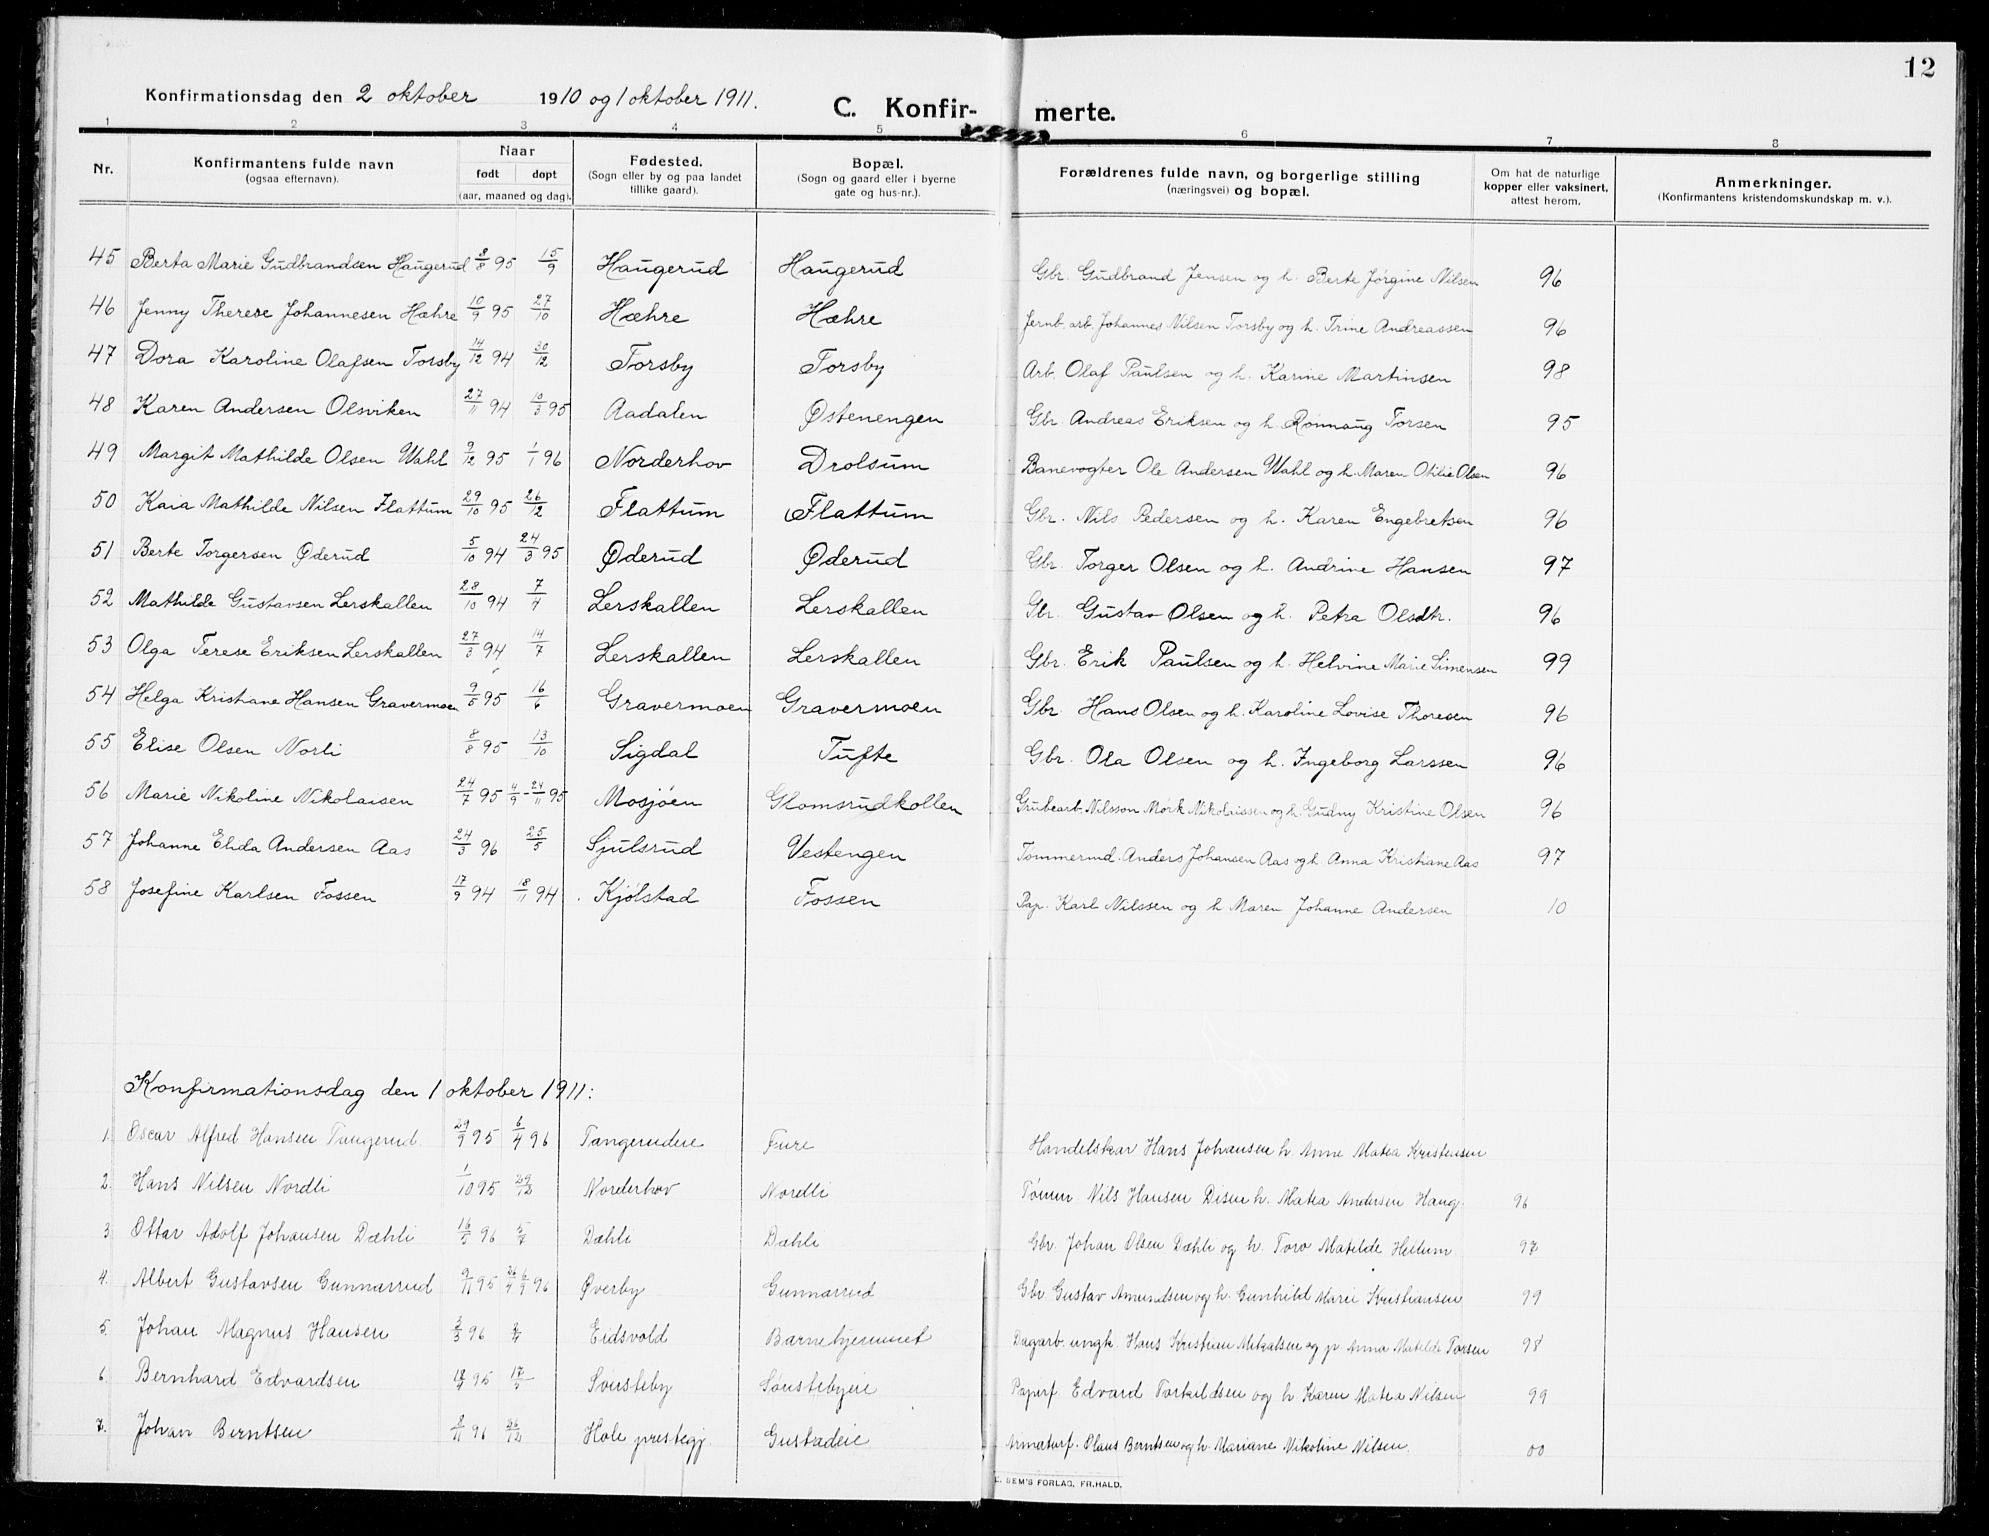 12
Konfirmationsdag den 2 oktober 1910 og 1 oktober 1911. C. Konfir- merte.
1 2 3 4 5 6 7 8
Nr. Konfirmantens fulde navn (ogsaa efternavn). Naar født døpt (aar, maaned og dag). Fødested. (Sogn eller by og paa landet tillike gaard). Bopæl. (Sogn og gaard eller i byerne gate og hus-nr.). Forældrenes fulde navn, og borgerlige stilling (næringsvei) og bopæl. Om hat de naturlige kopper eller vaksinert, attest herom. Anmerkninger. (Konfirmantens kristendomskundskap m. v.).
45 Berta Marie Gudbrandsen Haugerud 8/8 95 15/9 Haugerud Haugerud Gbr. Gudbrand Jensen og h. Berte Jørgine Nilsen 96
46 Jenny Therese Johannesen Hæhre 10/9 95 27/10 Hæhre Hæhre Jernb. arb. Johannes Nilsen Torsby og h. Trine Andreassen 96
47 Dora Karoline Olafsen Torsby 14/12 94 30/12 Torsby Torsby Arb. Olaf Paulsen og h. Karine Martinsen 98
48 Karen Andersen Olsviken 27/11 94 10/3 95 Aadalen Østenengen Gbr. Andreas Eriksen og h. Rønnaug Torsen 95
49 Margit Mathilde Olsen Wahl 9/12 95 1/1 96 Norderhov Drolsum Banevogter Ole Andersen Wahl og h. Maren Otilie Olsen 96
50 Kaia Mathilde Nilsen Flattum 29/10 95 26/12 Flattum Flattum Gbr. Nils Pedersen og h. Karen Engebretsen 96
51 Berte Torgersen Øderud 5/10 94 24/3 95 Øderud Øderud Gbr. Torger Olsen og h. Andrine Hansen 97
52 Mathilde Gustavsen Lerskallen 28/10 94 7/4 Lerskallen Lerskallen Gbr. Gustav Olsen og h. Petra Olsdtr. 96
53 Olga Terese Eriksen Lerskallen 27/3 94 14/7 Lerskallen Lerskallen Gbr. Erik Paulsen og h. Helvine Marie Simensen 99
54 Helga Kristiane Hansen Gravermoen 9/5 95 16/6 Gravermoen Gravermoen Gbr. Hans Olsen og h. Karoline Lovise Thoresen 96
55 Elise Olsen Norli 8/8 95 13/10 Sigdal Tufte Gbr. Ola Olsen og h. Ingeborg Larssen 96
56 Marie Nikoline Nikolaisen 24/7 95 4/9 - 24/11 95 Mosjøen Glomsrudkollen Grubearb. Nilsson Mørk Nikolaissen og h. Gudny Kristine Olsen 96
57 Johanne Elida Andersen Aas 24/3 96 25/5 Sjulsrud Vestengen Tømmermd. Anders Johansen Aas og h. Anna Kristiane Aas 97
58 Josefine Karlsen Fossen 17/9 94 18/11 94 Kjølstad Fossen Pap. Karl Nilssen og h Maren Johanne Andersen 10
Konfirmationsdag den 1 oktober 1911:
1. Oscar Alfred Hansen Tangerud 29/9 95 6/4 96 Tangerudeie Fure Handelskar Hans Johansen h. Anne Matea Kristensen
2. Hans Nilsen Nordli 1/10 95 29/12 Norderhov Nordli Tømm Nils Hansen Disen h. Matea Andersen Haug. 96
3. Ottar Adolf Johansen Dæhli 16/5 96 5/7 Dæhli Dæhli Gbr. Johan Olsen Dæhli og h. Toro Matilde Hellum 97
4. Albert Gustavsen Gunnarrud 9/11 95 26/4 6/9 96 Øverby Gunnarrud Gbr. Gustav Amundsen og h. Gunhild Marie Kristiansen 99
5. Johan Magnus Hansen 3/3 96 Eidsvold Barnehjemmet Dagarb. ungk. Hans Kristian Mikalsen og p. Anna Matilde Torsen 98
6. Bernhard Edvardsen 95 Sønsteby Sønstebyeie Paperf. Edvard Torkildsen og h. Karen Matea Nilsen 99
7. Johan Berntsen 8/11 96 26/12 Hole prestegj. Gustadeie Armaturf. Claus Berntsen og h. Mariane Nikoline Nilsen. 00
E. SEM'S FORLAG, FR.HALD.